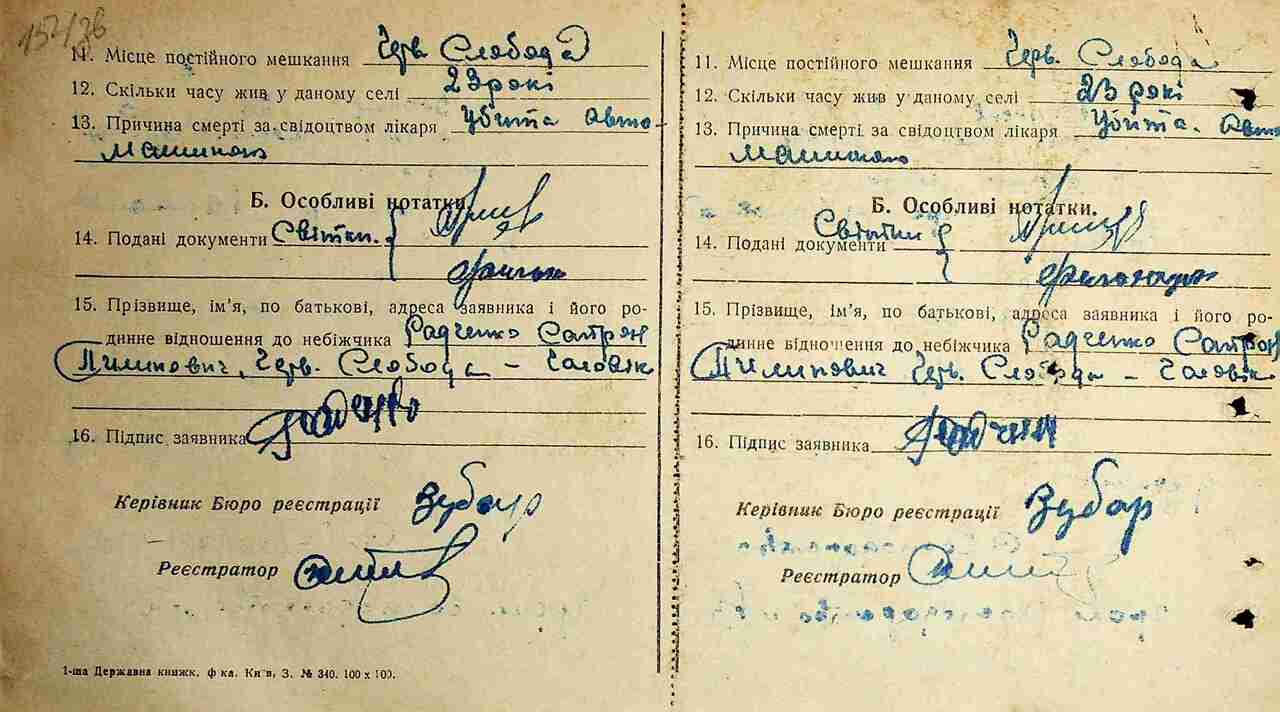 157/36
11. Місце постійного мешкання Черв. Слобода
12. Скільки часу жив у даному селі 23 рокі
13. Причина смерті за свідоцтвом лікаря Убита Авто-
машиною
Б. Особливі нотатки.
14. Подані документи Світки.
15. Прізвище, ім'я, по батькові, адреса заявника і його ро-
динне відношення до небіжчика Радченко Сапрон
Пилипович, Черв. Слобода – Чоловік
16. Підпис заявника Радченко
Керівник Бюро реєстрації Зубар
Реєстратор
1-ша Державна книжк. ф-ка. Київ, З. № 340. 100 х 100.
11. Місце постійного мешкання Черв. Слобода
12. Скільки часу жив у даному селі 23 рокі
13. Причина смерті за свідоцтвом лікаря Убита. Авто
машиною
Б. Особливі нотатки.
14. Подані документи Світки
15. Прізвище, ім'я, по батькові, адреса заявника і його ро-
динне відношення до небіжчика Радченко Сапрон
Пилипович Черв. Слобода – Чоловік
16. Підпис заявника Радченк
Керівник Бюро реєстрації Зубар
Реєстратор